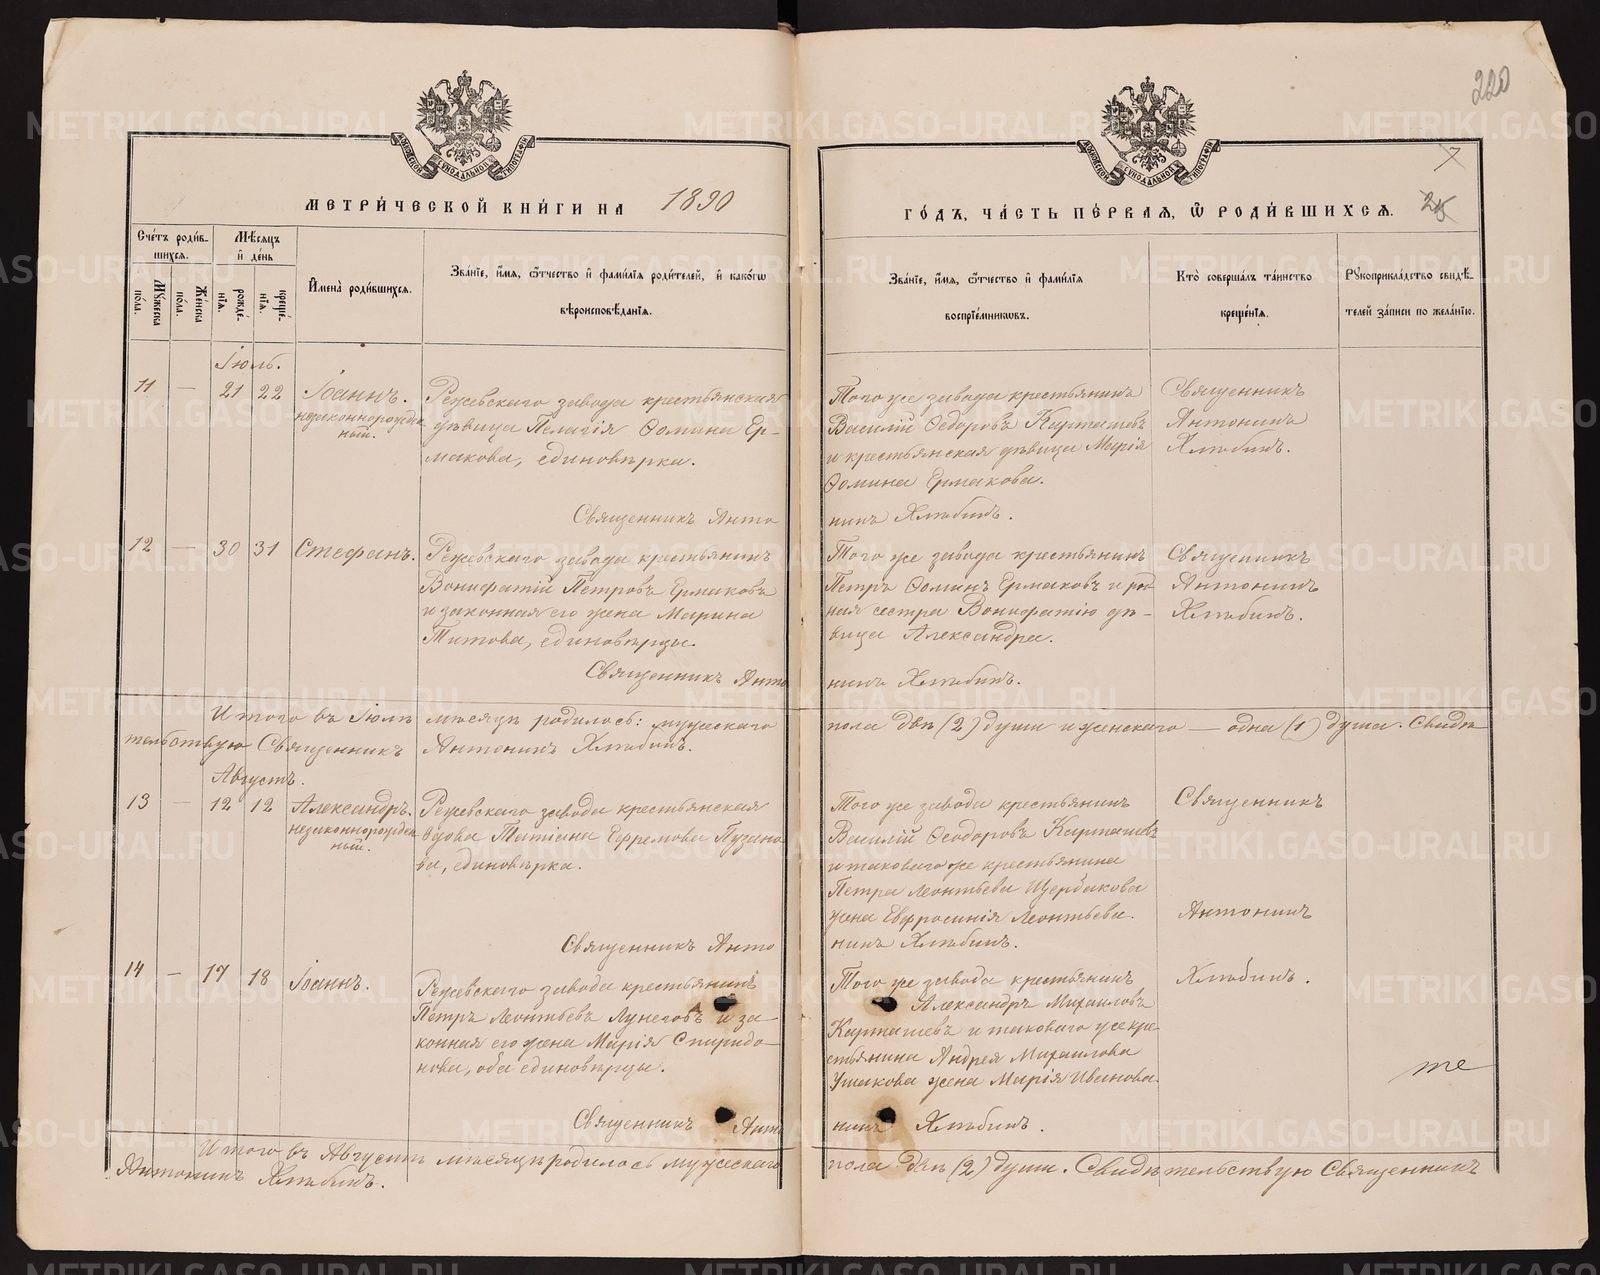 220
МОСКОВСКОЙ СѴНОДАЛЬНОЙ ТИПОГРАФІИ
МОСКОВСКОЙ СѴНОДАЛЬНОЙ ТИПОГРАФІИ
7
МЕТРИ́ЧЕСКОЙ КНИ́ГИ НА 1890
ГО́ДЪ, ЧА́СТЬ ПЕ́РВАЯ, Ѿ РОДИ́ВШИХСЯ.
Сче́тъ роди́в-
шихся.
Му́жеска по́ла.
Же́нска по́ла.
Мѣ́сяцъ
и́ де́нь
рожде́-
нія.
креще́-
нія.
И҆мена̀ роди́вшихся.
Зва́нїе, и҆́мя, ѻ҆́тчество и҆ фами́лїя роди́телей, и҆ како́гѡ
вѣроисповѣ́данїя.
Зва́нїе, и҆́мя, ѻ҆́тчество и҆ фами́лїя
воспрїе́мникѡвъ.
Кто̀ соверша́лъ та́инство
креще́нїя.
Рꙋкоприкла́дство свидѣ́-
телей за́писи по жела́нїю.
Іюль.
11 — 21 22 Іоаннъ.
незаконнорожден
ный.
Режевскаго завода крестьянская
дѣвица Пелагія Ѳомина Ер-
макова, единовѣрка.
Священникъ Анто
Того же завода крестьянинъ
Василій Ѳедоровъ Карташевъ
и крестьянская дѣвица Марія
Ѳомина Ермакова.
нинъ Хлѣбинъ.
Священникъ
Антонинъ
Хлѣбинъ.
12 — 30 31 Стефанъ.
Режевскаго завода крестьянинъ
Вонифатій Петровъ Ермаковъ
и законная его жена Марина
Титова, единовѣрцы.
Священникъ Анто
Того же завода крестьянинъ
Петръ Ѳоминъ Ермаковъ и род
ная сестра Вонифатію дѣ-
вица Александра.
нинъ Хлѣбинъ.
Священникъ
Антонинъ
Хлѣбинъ.
Итого въ Іюлѣ мѣсяцѣ родилось: мужескаго пола двѣ (2) души и женскаго — одна (1) душа. Свидѣ
тельствую Священникъ Антонинъ Хлѣбинъ.
Августъ.
13 — 12 12 Александръ.
незаконнорожден
ный.
Режевскаго завода крестьянская
вдова Татіана Ефремова Пузано
ва, единовѣрка.
Священникъ Анто
Того же завода крестьянинъ
Василій Ѳеодоровъ Карташевъ
и таковаго же крестьянина
Петра Леонтьева Щербакова
жена Евфросинія Леонтьева.
нинъ Хлѣбинъ.
Священникъ
Антонинъ
Хлѣбинъ.
14 — 17 18 Іоаннъ.
Режевскаго завода крестьянинъ
Петръ Леонтьевъ Лунеговъ и за-
конная его жена Марія Спиридо-
нова, оба единовѣрцы.
Священникъ Анто
Того же завода крестьянинъ
Александръ Михаиловъ
Карташевъ и таковаго же кре
стьянина Андрея Михаилова
Ушакова жена Марія Иванова.
нинъ Хлѣбинъ.
те
Итого въ Августѣ мѣсяцѣ родилось мужескаго пола двѣ (2) души. Свидѣтельствую Священникъ
Антонинъ Хлѣбинъ.
METRIKI.GASO-URAL.RU